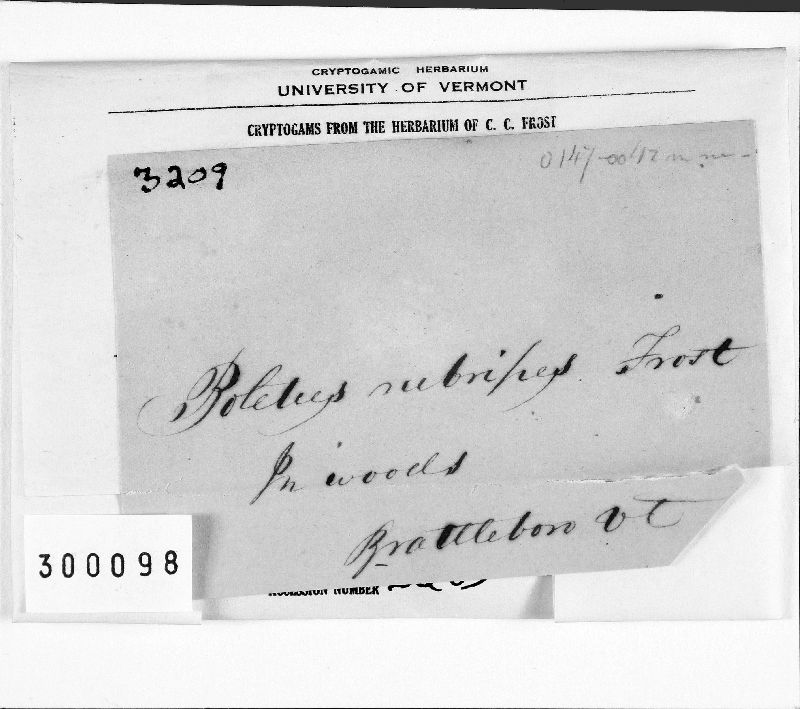 CRYPTOGAMIC HERBARIUM
UNIVERSITY OF VERMONT
CRYPTOGAMS FROM THE HERBARIUM OF C. C. FROST
3209
Boletus rubripes Frost
In woods
Brattleboro Vt
300098
ACCESSION NUMBER